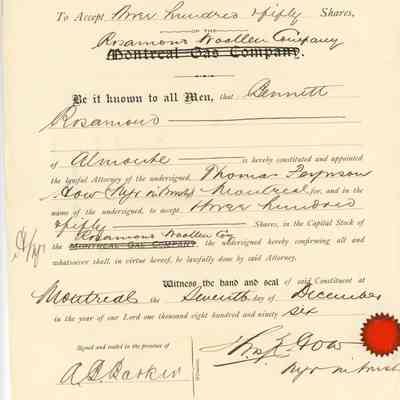 To Accept Three hundred & fifty Shares,
OF THE
Rosamond Woollen Company
Montreal Gas Company.
Be it known to all Men, that Bennett
Rosamond
of Almonte is hereby constituted and appointed
the lawful Attorney of the undersigned, Thomas Ferguson
Gow Mfr in trust Montreal for, and in the
name of the undersigned, to accept three hundred
& fifty Shares, in the Capital Stock of
Rosamond Woollen Coy
the MONTREAL GAS COMPANY, the undersigned hereby confirming all and
whatsoever shall, in virtue hereof, be lawfully done by said Attorney.
Witness the hand and seal of said Constituent at
Montreal the Seventh day of December
in the year of our Lord one thousand eight hundred and ninety six
Signed and sealed in the presence of
Gow
in trust